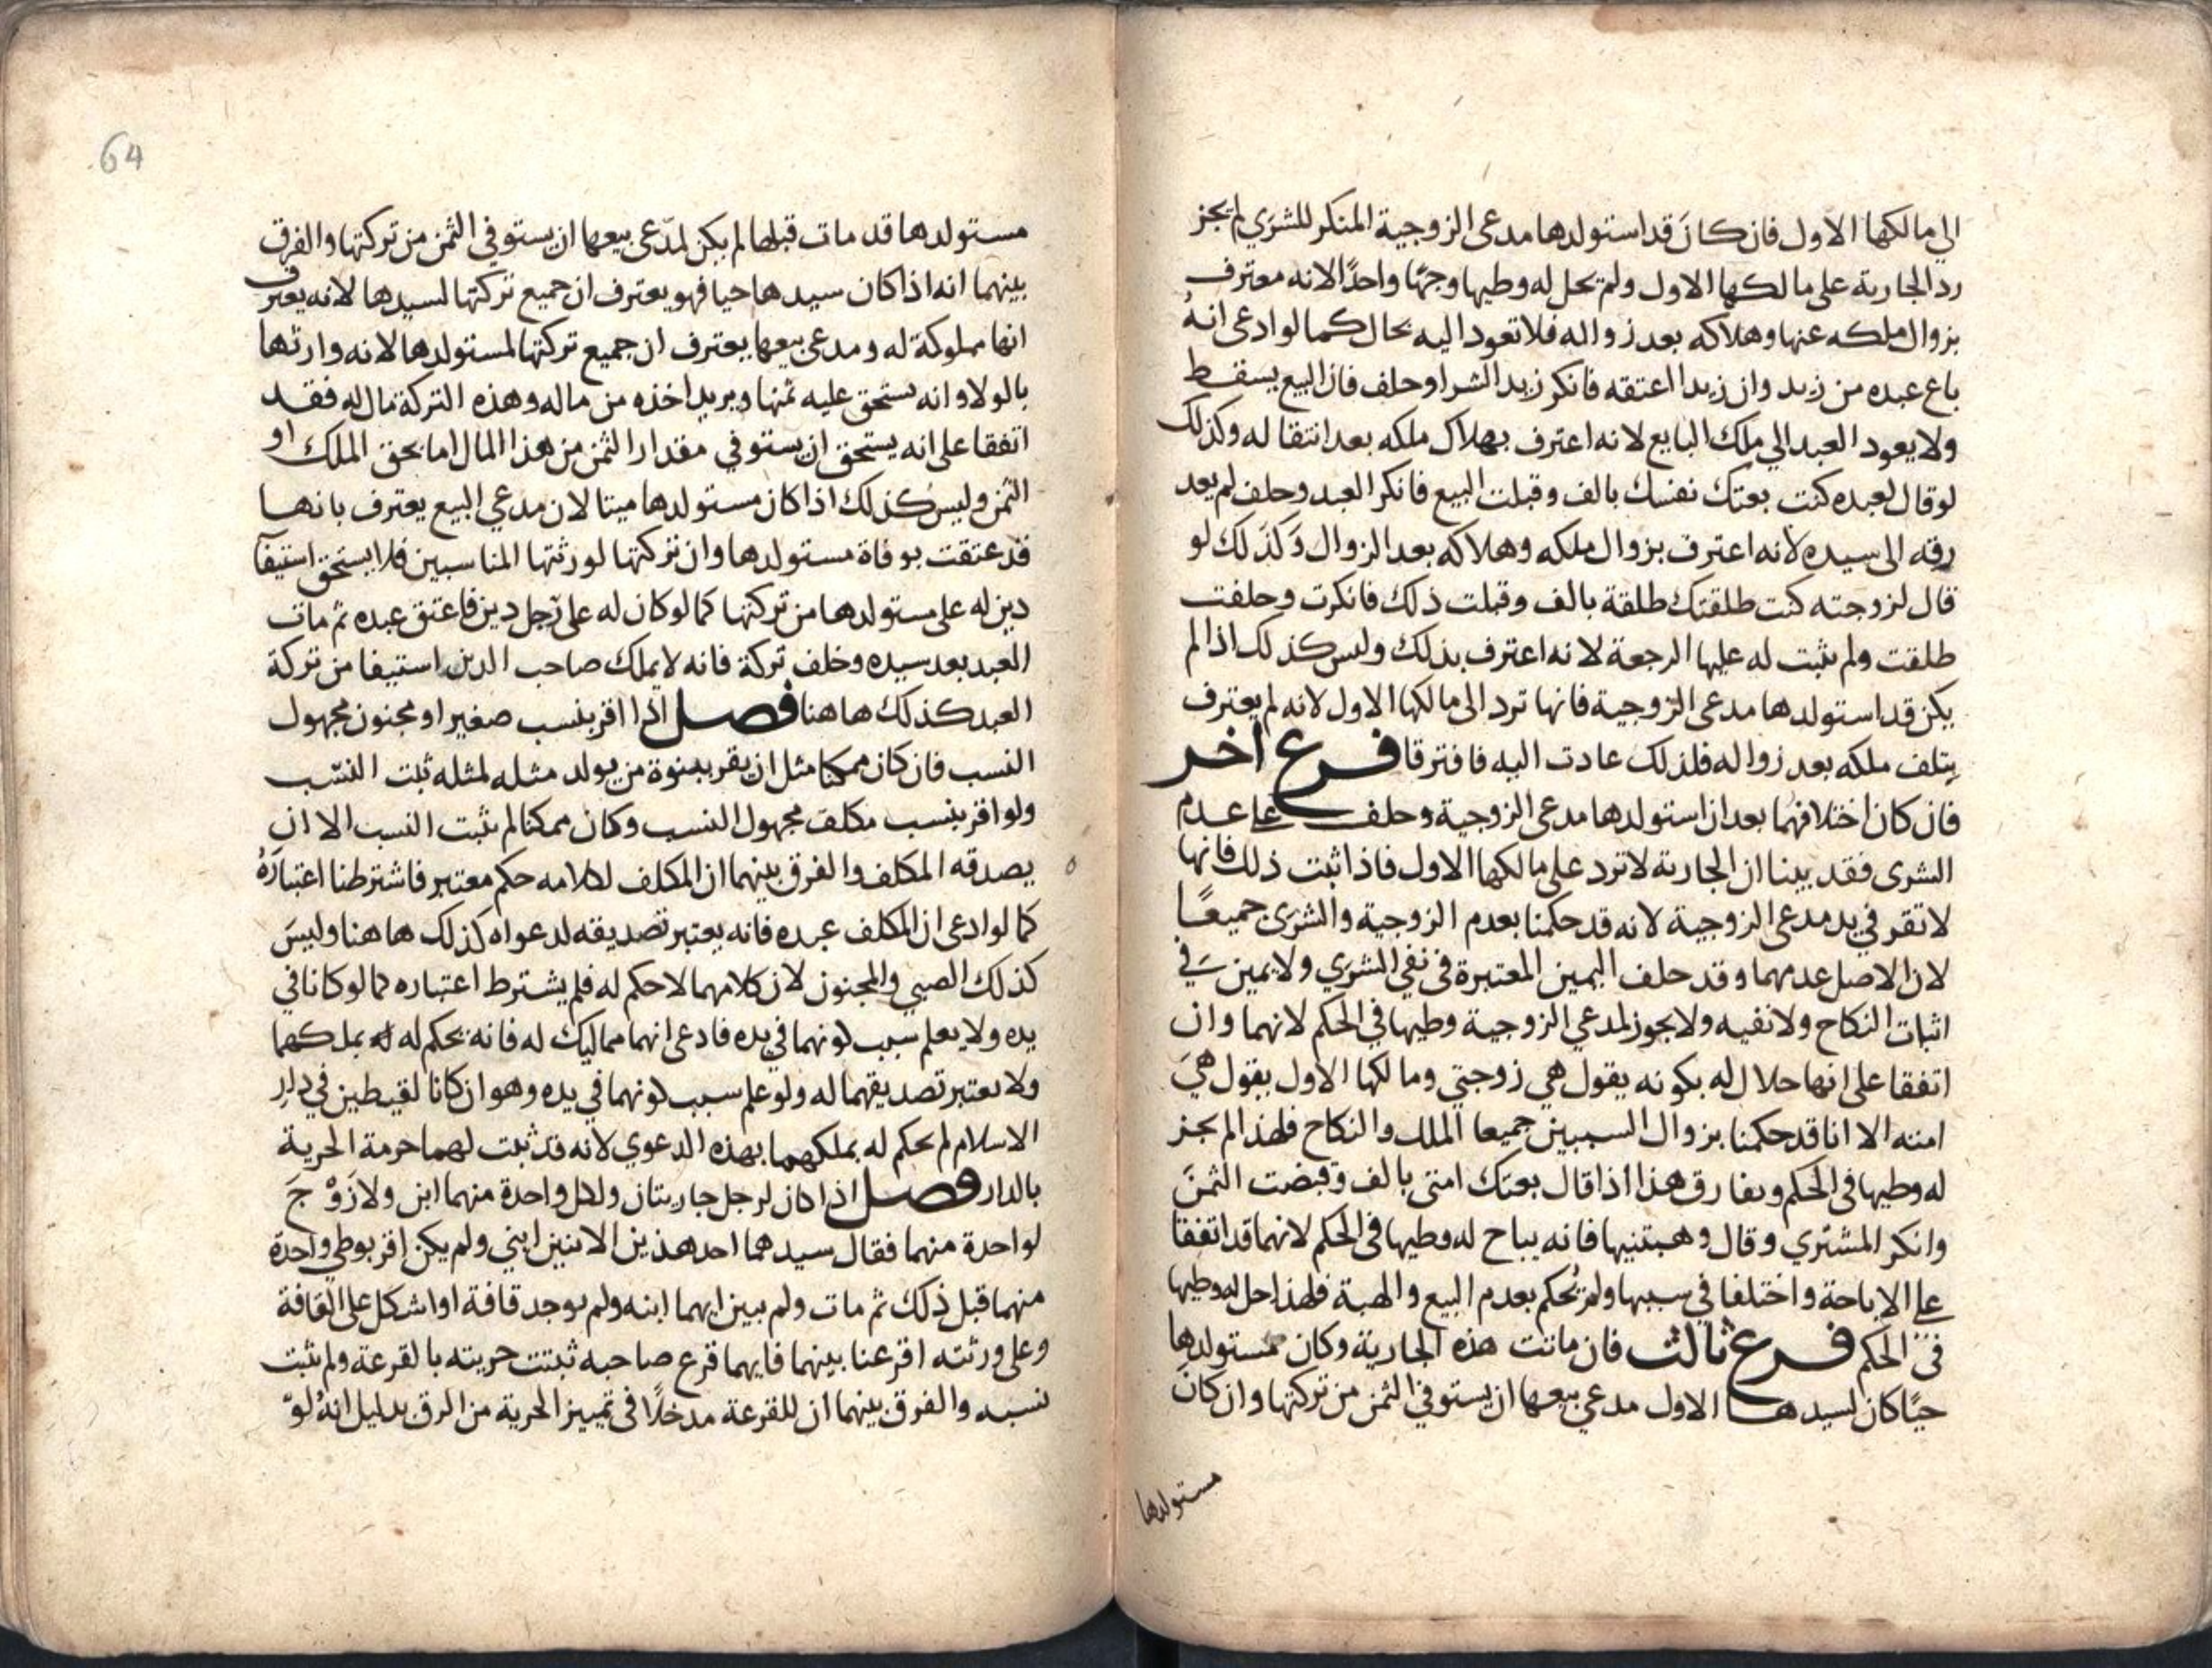 الى مالكها الاول فان كانَ قد استولدها مدعى الزوجية المنكر للشرَي لم يجز
رد الجارية على مالكها الاول ولم يحل له وطيها وجهًا واحدًا لانه معترف
بزوال ملكه عنها وهلاكه بعد زواله فلا تعود اليه بحال كما لو ادعى انهُ
باع عبده من زيد وان زيدا اعتقه فانكر زيد الشرا وحلف فان البيع يسقط
ولا يعود العبد الي ملك البايع لانه اعترف بهلاك ملكه بعد انتقاله وكذلك
لو قال لعبده كنت بعتك نفسك بالف وقبلت البيع فانكر العبد وحلف لم يعد
رقه الى سيده لانه اعترف بزوال ملكه وهلاكه بعد الزوال وَكذَلك لو
قال لزوجته كنت طلقتك طلقة بالف وقبلت ذلك فانكرت وحلفت
طلقت ولم يثبت له عليها الرجعة لانه اعترف بذلك وليس كذلك اذا لم
يكن قد استولدها مدعى الزوجية فانها ترد الى مالكها الاول لانه لم يعترف
بتلف ملكه بعد زواله فلذلك عادت اليه فافترقا فرع اخر
فان كان اختلافهما بعد ان استولدها مدعى الزوجية وحلف على عدم
الشرى فقد بينا ان الجارية لا ترد على مالكها الاول فاذا ثبت ذلك فانها
لا تقر في يد مدعى الزوجية لانه قد حكمنا بعدم الزوجية والشرى جميعًا
لان الاصل عدمهما وقد حلف اليمين المعتبرة فى نفى الشرَي ولا يمين في
اثبات النكاح ولا نفيه ولا يجوز لمدعي الزوجية وطيها في الحكم لانهما وان
اتفقا على انها حلال له بكونه يقول هي زوجتي ومالكها الاول يقول هيَ
امته الا انا قد حكمنا بزوال السببين جميعا الملك والنكاح فلهذا لم يجز
له وطيها فى الحكم ويفارق هذا اذا قال بعتك امتى بالف وقبضت الثمنَ
وانكر المشتري وقال وهبتنيها فانه يباح له وطيها فى الحكم لانهما قد اتفقا
على الاباحة واختلفا في سببها ولم نُحكم بعدم البيع والهبة فلهذا حل له وطيها
فى الحكم فرع ثالث فان ماتت هذه الجارية وكان مستولدها
حيًا كان لسيدها الاول مدعي بيعها ان يستوفي الثمن من تركتها وان كان
مستولدها
64
مستولدها قد مات قبلها لم يكن لمدّعى بيعها ان يستوفي الثمن من تركتها والفرق
بينهما انه اذا كان سيدها حيا فهو يعترف ان جميع تركتها لسيدها لانه يعترف
انها مملوكة له ومدعى بيعها يعترف ان جميع تركتها لمستولدها لانه وارثها
بالولا وانه يستحق عليه ثمنها ويريد اخذه من ماله وهذه التركة مال له فقد
اتفقا على انه يستحق ان يستوفي مقدار الثمن من هذا المال اما بحق الملك او
الثمن وليس كذلك اذا كان مستولدها ميتا لان مدعي البيع يعترف بانها
قد عتقت بوفاة مستولدها وان تركتها لورثتها المناسبين فلا يستحق استيفآ
دين له على مستولدها من تركتها كما لو كان له على رجل دين فاعتق عبده ثم مات
العبد بعد سيده وخلف تركة فانه لا يملك صاحب الدين استيفا من تركة
العبد كذلك هاهنا فصل اذا اقر بنسب صغير او مجنون مجهول
النسب فان كان ممكنا مثل ان يقر ببنوة من يولد مثله لمثله ثبت النسَب
ولو اقر بنسب مكلف مجهول النسب وكان ممكنا لم يثبت النسب الا ان
يصدقه المكلف والفرق بينهما ان المكلف لكلامه حكم معتبر فاشترطنا اعتبارَهُ
كما لو ادعى ان المكلف عبده فانه يعتبر تصديقه لدعواه كذلك هاهنا وليسَ
كذلك الصبي والمجنون لان كلامهما لا حكم له فلم يشترط اعتباره كما لو كانا في
يده ولا يعلم سبب كونهما في يده فادعى انهما مماليك له فانه يحكم له بملكهما
ولا يعتبر تصديقهما له ولو علم سبب كونهما في يده وهو ان كانا لقيطين في دار
الاسلام لم يحكم له بملكهما بهذه الدعوي لانه قد ثبت لهما حرمة الحرية
بالدار فصل اذا كان لرجل جاريتان ولكل واحدة منهما ابن ولا زَوْجَ
لواحدة منهما فقال سيدهما احد هذين الابنين ابني ولم يكن اقر بوطي واحدة
منهما قبل ذلك ثم مات ولم يبين ايهما ابنه ولم يوجد قافة او اشكل على القافة
وعلى ورثته اقرعنا بينهما فايهما قرع صاحبه ثبتت حريته بالقرعة ولم يثبت
نسبه والفرق بينهما ان للقرعة مدخلًا فى تمييز الحرية من الرق بدليل انهُ لوْ